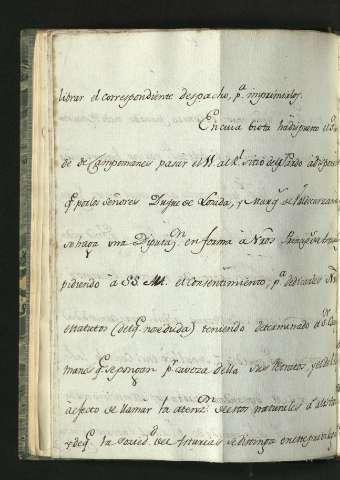 librar el correspondiente despacho, p.ª imprimirlos.
En cuia vista ha dispuesto el S.
de de Campomanes pasar el 11 al R.l sitio del Pardo a disponer
q.e por los señores Duque de Losada, y Marq.s de Valdecarzana
se haga una Diputaz.n en forma à Nros Principes
pidiendo à SS. MM. el consentimiento, p.ª dedicarles Nros
estatutos (de q.e no se duda) teniendo determinado
manes q.e se pongan p.r caveza de ella sus Retratos
à efecto de llamar la atenz.on de estos naturales
y de q.e la socied.d de Asturias se distinga entre